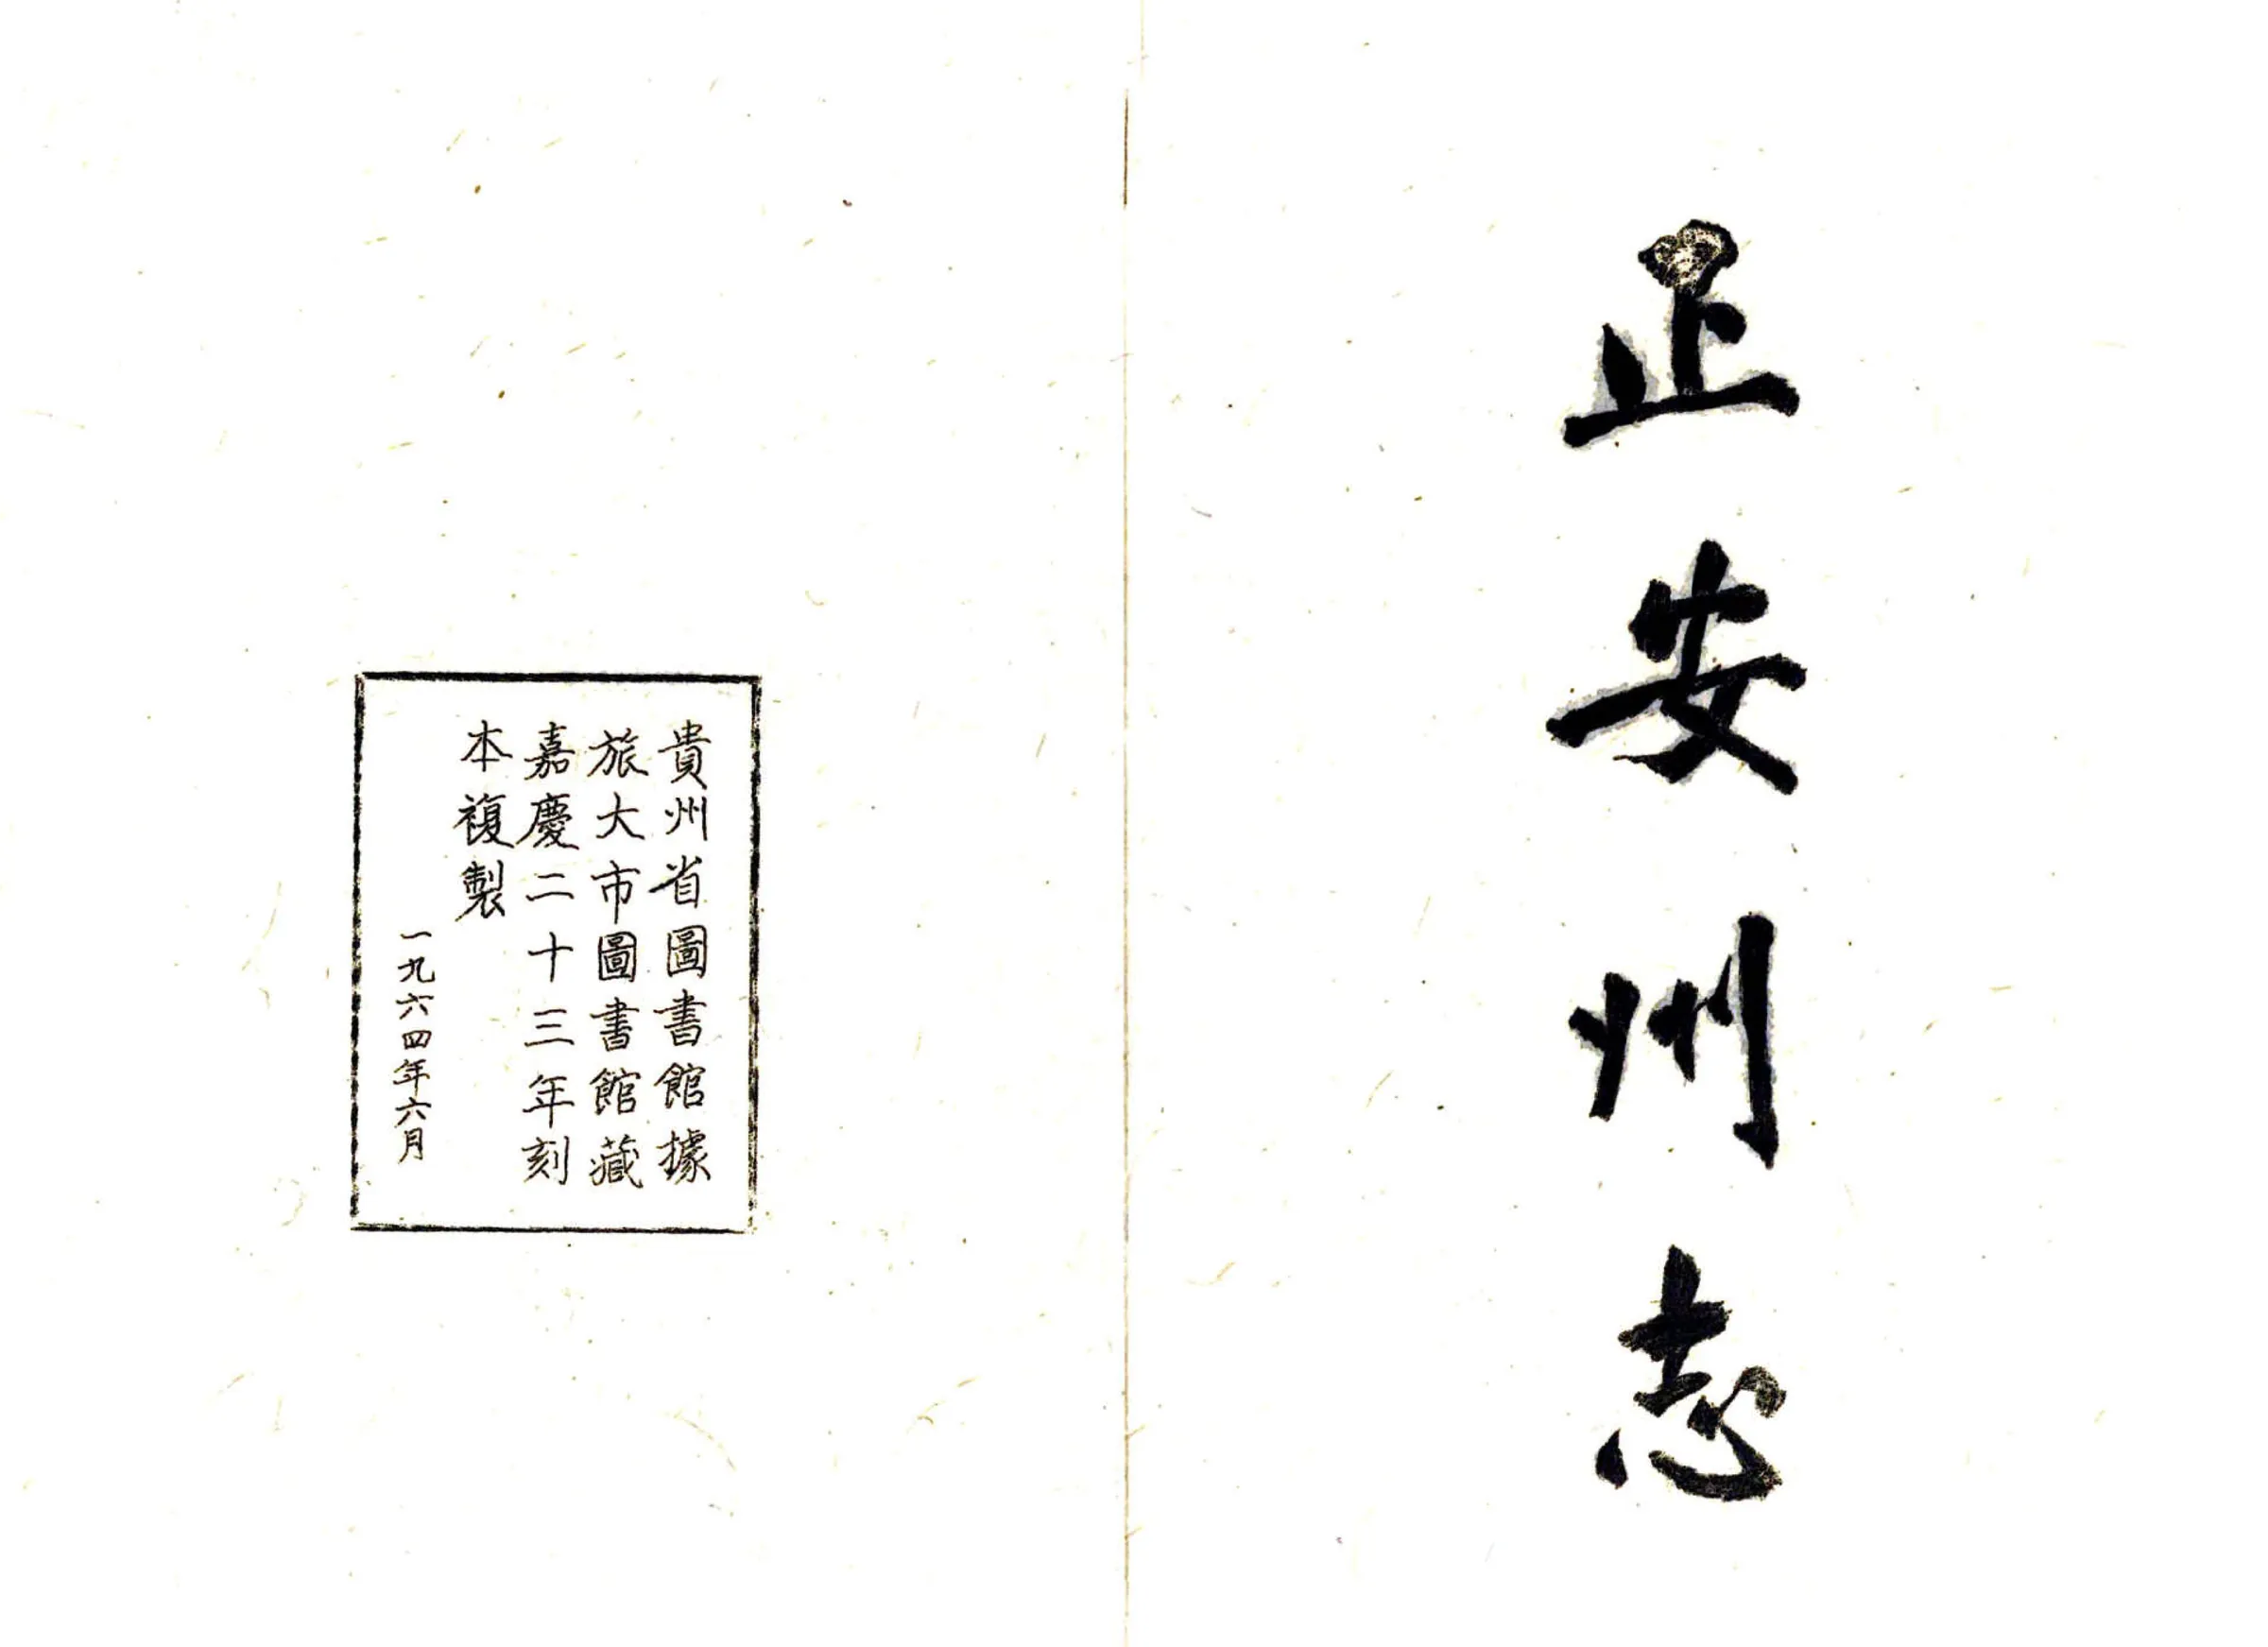 正安州志
貴州省圖書館據
旅大市圖書館藏
嘉慶二十三年刻
本複製
一九六四年六月